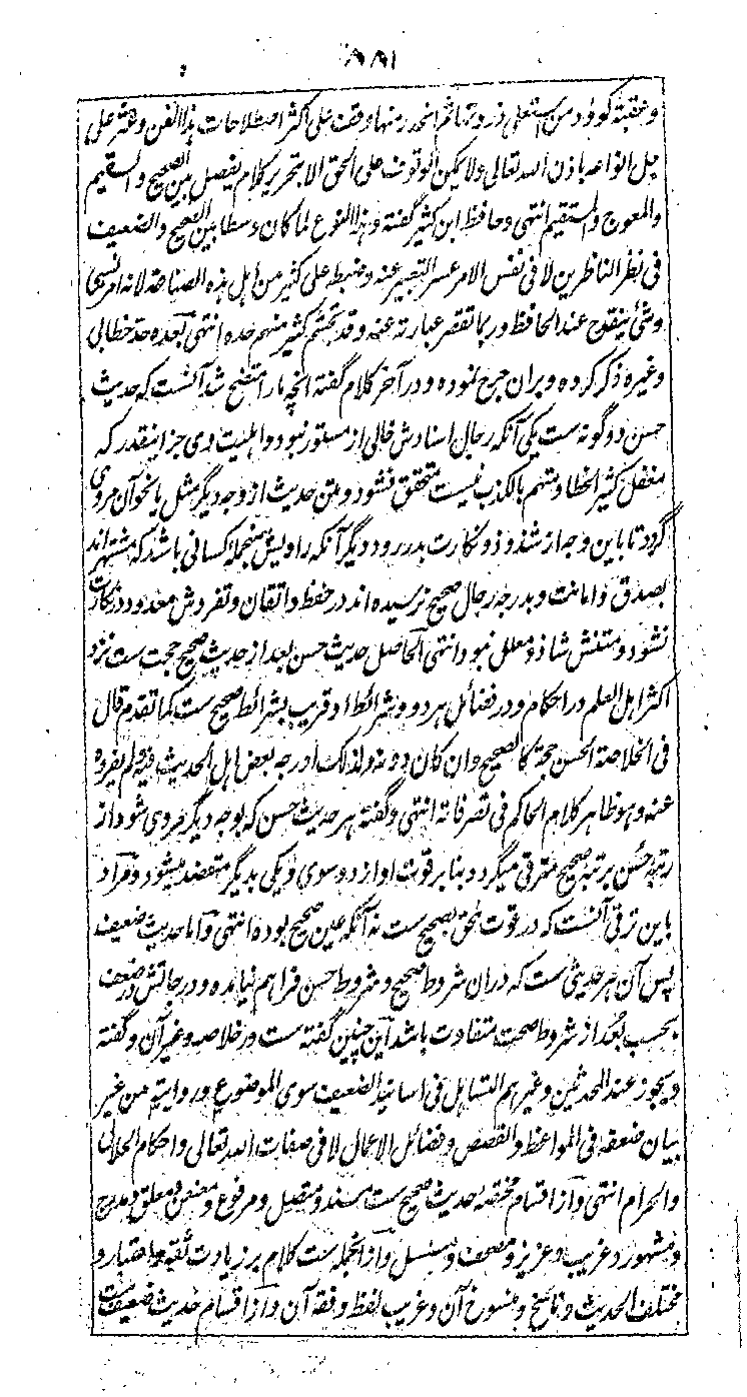 ۸۸۱
وعقبة كوود من استعلى ذروتها ثم انحدر منها وقف على اكثر اصطلاحات هذا الفن وعثر على
جل انواعه باذن الله تعالى ولا يمكن الوقوف على الحق الا بتحرير كلام يفصل بين الصحيح والسقيم
والمعوج والمستقيم انتهى وحافظ ابن كثير گفته وهذا النوع لما كان وسطا بين الصحيح والضعيف
فى نظر الناظرين لا فى نفس الامر عسر التعبير عنه وضبطه على كثير من اهل هذه الصناعة لانه امر نسبى
وشئ ينقدح عند الحافظ ربما تقصر عبارته عنه وقد تجشم كثير منهم حده انتهى بعده حد خطابى
وغيره ذكر كرده وبران جرح نموده ودر آخر كلام گفته انچه مارا متضح شد آنست كه حديث
حسن دوگونه ست يكى آنكه رجال اسنادش خالى از مستور نبود واهليت وى جز اينقدر كه
مغفل كثير الخطا ومتهم بالكذب نيست متحقق نشود ومتن حديث از وجه ديگر مثل يا نحو آن مروى
گردد تا باين وجه از شذوذ ونكارت بدر رود ديگر آنكه راويش منجمله كسانى باشد كه مشتهر اند
بصدق وامانت وبدرجه رجال صحيح نرسيده اند در حفظ واتقان وتفردش معدود در نكارت
نشود ومتنش شاذ ومعلل نبود انتهى الحاصل حديث حسن بعد از حديث صحيح حجت ست نزد
اكثر اهل العلم در احكام ودر فضائل هر دو وشرائط او قريب بشرائط صحيح ست كما تقدم قال
فى الخلاصة الحسن حجة كالصحيح وان كان دونه ولذلك ادرجه بعض اهل الحديث فيه ولم يفرده
عنه وهو ظاهر كلام الحاكم فى تصرفاته انتهى وگفته هر حديث حسن كه بوجه ديگر مروى شود از
رتبه حسن برتبه صحيح مترقى ميگردد بنا بر قوت او از دو سوى ويكى بديگر متعضد ميشود ومراد
باين ترقى آنست كه در قوت ملحق بصحيح ست نه آنكه عين صحيح بوده انتهى واما حديث ضعيف
پس آن هر حديثى ست كه دران شروط صحيح وشروط حسن فراهم نيامده ودرجاتش در ضعف
بحسب بعد از شروط صحت متفاوت باشد اين چنين گفته ست در خلاصه وغير آن وگفته
ويجوز عند المحدثين وغيرهم التساهل فى اسانيد الضعيف سوى الموضوع وروايته من غير
بيان ضعفه فى المواعظ والقصص وفضائل الاعمال لا فى صفات الله تعالى واحكام الحلال
والحرام انتهى واز اقسام مختصه بحديث صحيح ست مسند ومتصل ومرفوع ومعنعن ومعلق ومدرج
ومشهور وغريب وعزيز ومصحف ومسلسل واز انجمله ست كلام بر زيادت ثقه واعتبار و
مختلف الحديث وناسخ ومنسوخ آن وغريب لفظ وفقه آن واز اقسام حديث ضعيف ست